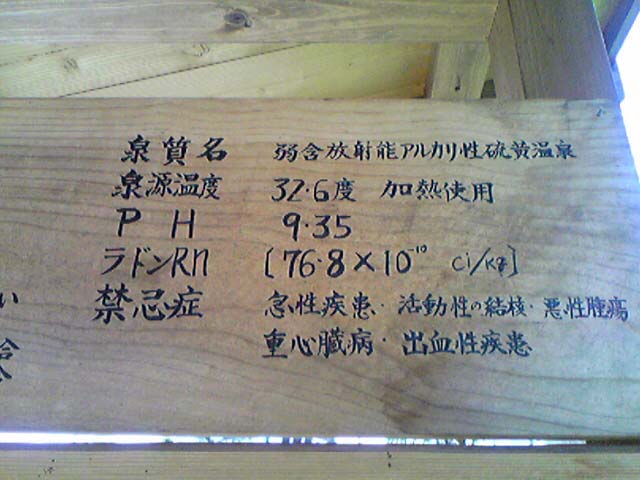 泉質名 弱含放射能アルカリ性硫黄温泉
泉源温度 32.6度 加熱使用
PH 9.35
ラドンRn [76.8×10⁻¹⁰ Ci/Kg]
い 禁忌症 急性疾患・活動性の結核・悪性腫瘍
重心臓病・出血性疾患